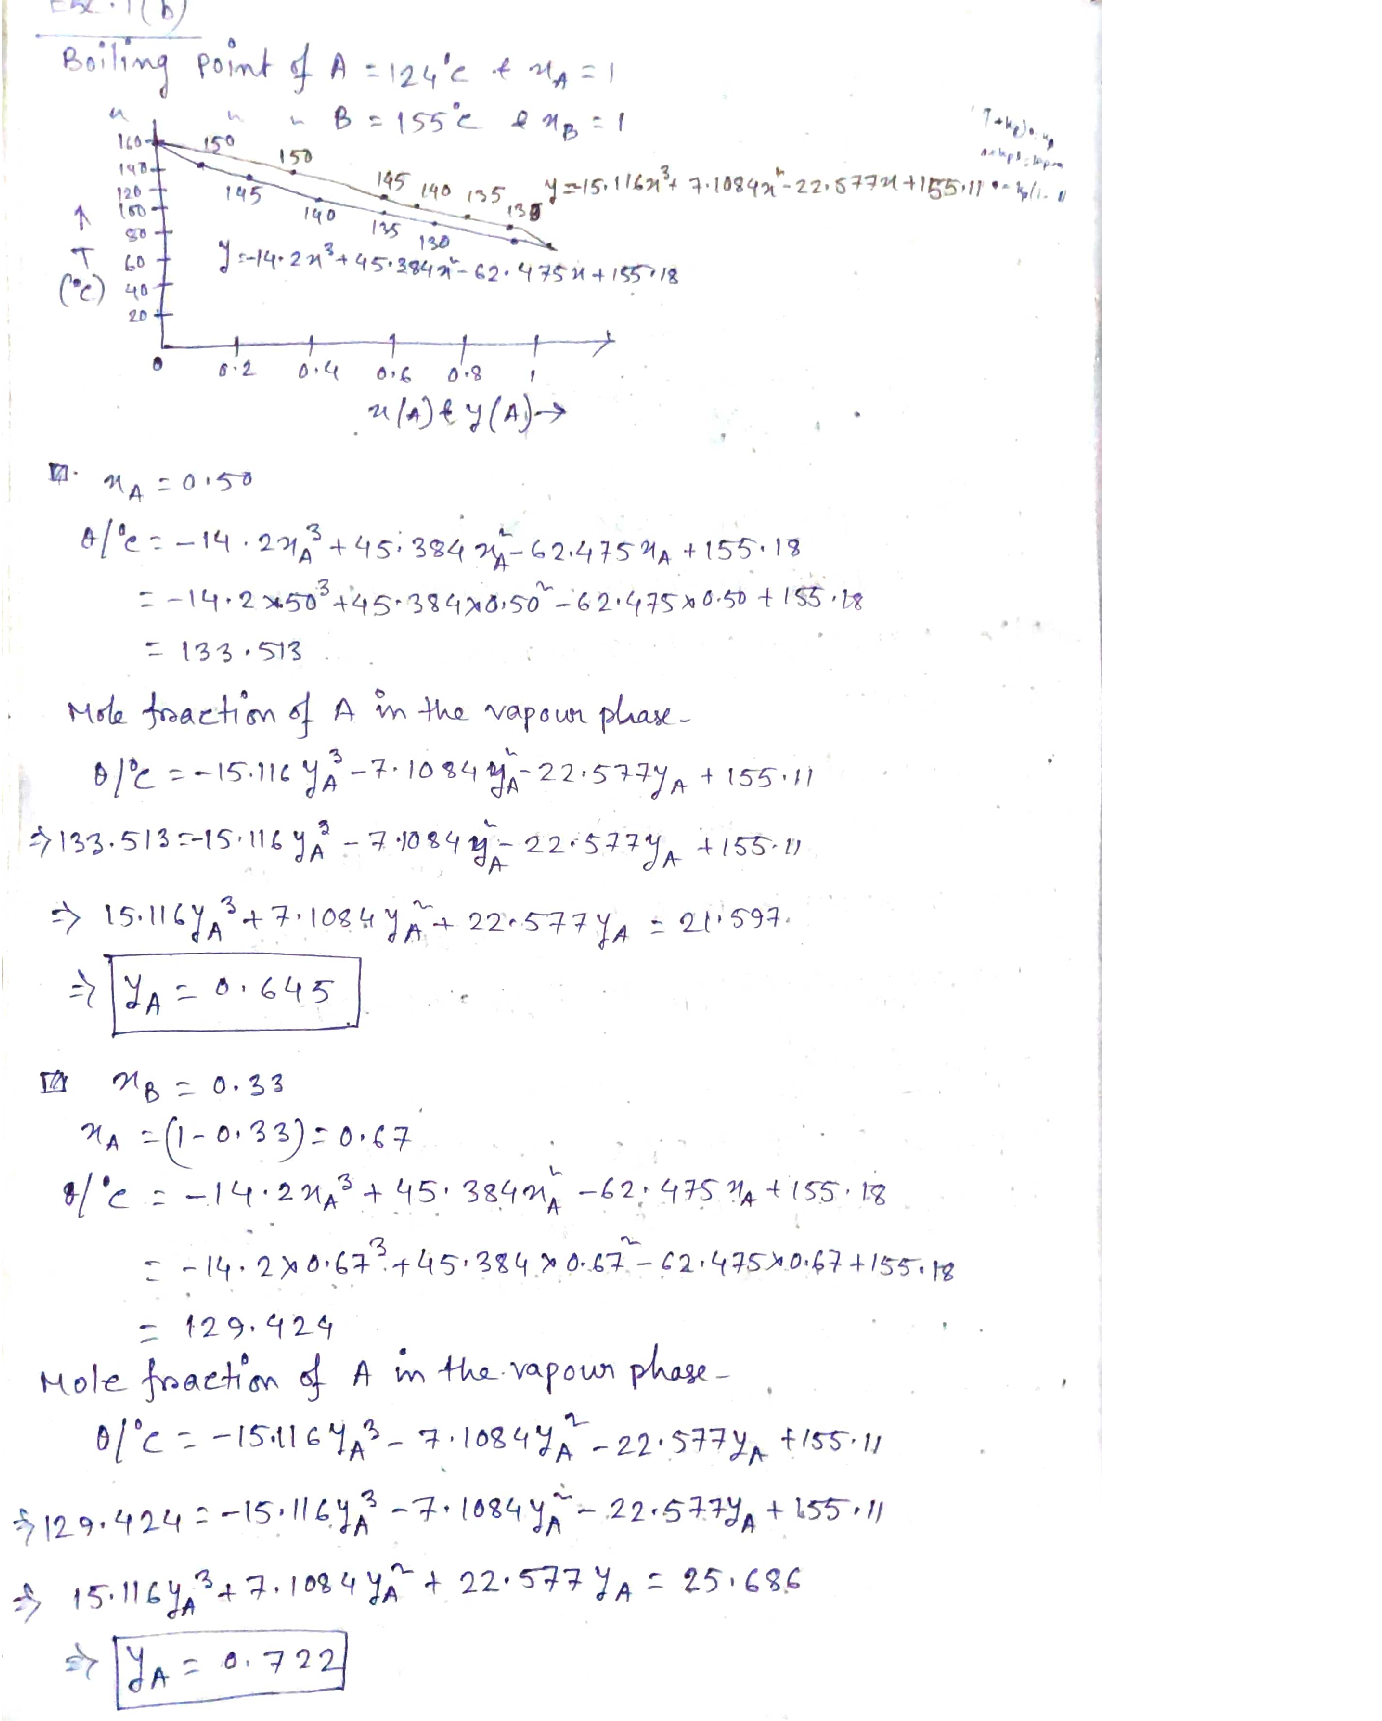 Ex. 1(b)
Boiling point of A = 124°C & xA = 1
" " " B = 155°C & xB = 1
160 150 150
140 145 145 140 135 y = 15.116x³+ 7.1084x²-22.577x+155.11
120 140 130
100 135
80 130
60 y = -14.2x³+45.384x²-62.475x+155.18
↑ T (°C)
40
20
0 0.2 0.4 0.6 0.8 1
x(A) & y(A)→
xA = 0.50
θ/°C = -14.2xA³+45.384xA²-62.475xA+155.18
= -14.2×50³+45.384×0.50²-62.475×0.50+155.18
= 133.513
Mole fraction of A in the vapour phase-
θ/°C = -15.116yA³-7.1084yA²-22.577yA+155.11
⇒133.513=-15.116yA³-7.1084yA²-22.577yA+155.11
⇒ 15.116yA³+7.1084yA²+22.577yA = 21.597.
⇒ yA = 0.645
xB = 0.33
xA = (1-0.33)=0.67
θ/°C = -14.2xA³+45.384xA²-62.475xA+155.18
= -14.2×0.67³+45.384×0.67²-62.475×0.67+155.18
= 129.424
Mole fraction of A in the vapour phase-
θ/°C = -15.116yA³-7.1084yA²-22.577yA+155.11
⇒129.424=-15.116yA³-7.1084yA²-22.577yA+155.11
⇒ 15.116yA³+7.1084yA²+22.577yA = 25.686
⇒ yA = 0.722